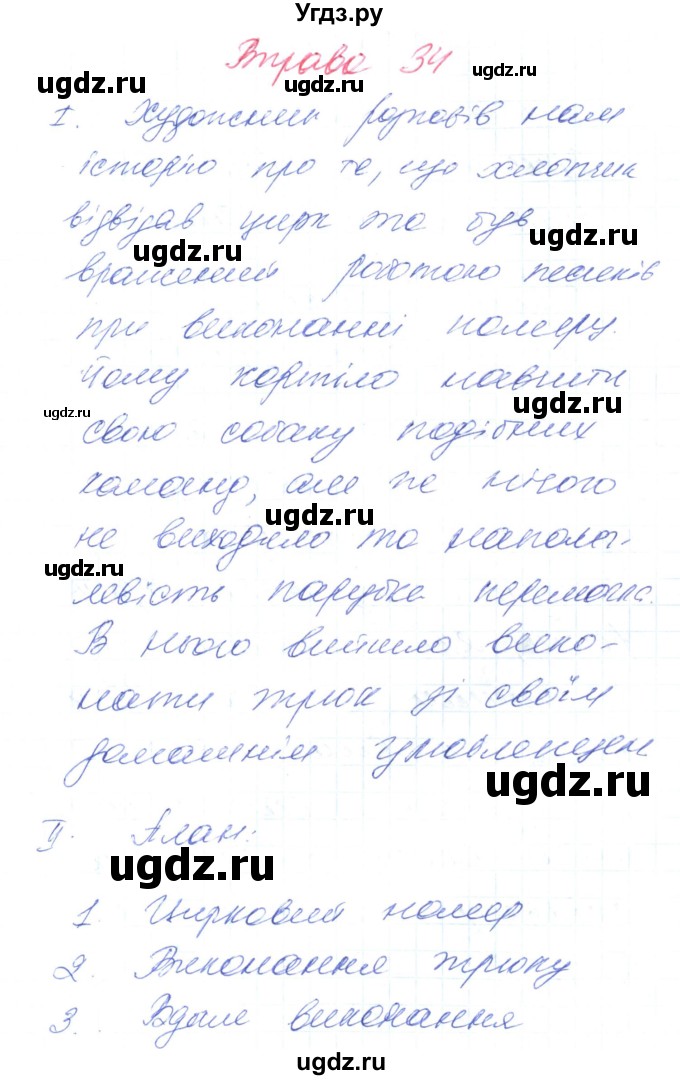 Угдз.ру
Вправа 34
ugdz.ru
ugdz.ru
І. Художник розповів нам
історію про те, що хлопчик
відвідав цирк та був
ugdz.ru
ugdz.ru
вражений роботою песиків
при виконанні номеру.
Йому кортіло навчити
ugdz.ru
ugdz.ru
свою собаку подібних
команд, але же нічого
ugdz.ru
не виходило та наполег-
ugdz.ru
ugdz.ru
левість парубка перемогла.
В нього вийшло вико-
нати трюк зі своїм
ugdz.ru
домашнім улюбленцем
ugdz.ru
ІІ. План:
ugdz.ru
1. Цирковий номер
ugdz.ru
2. Виконання трюку
3. Вдале виконання
ugdz.ru